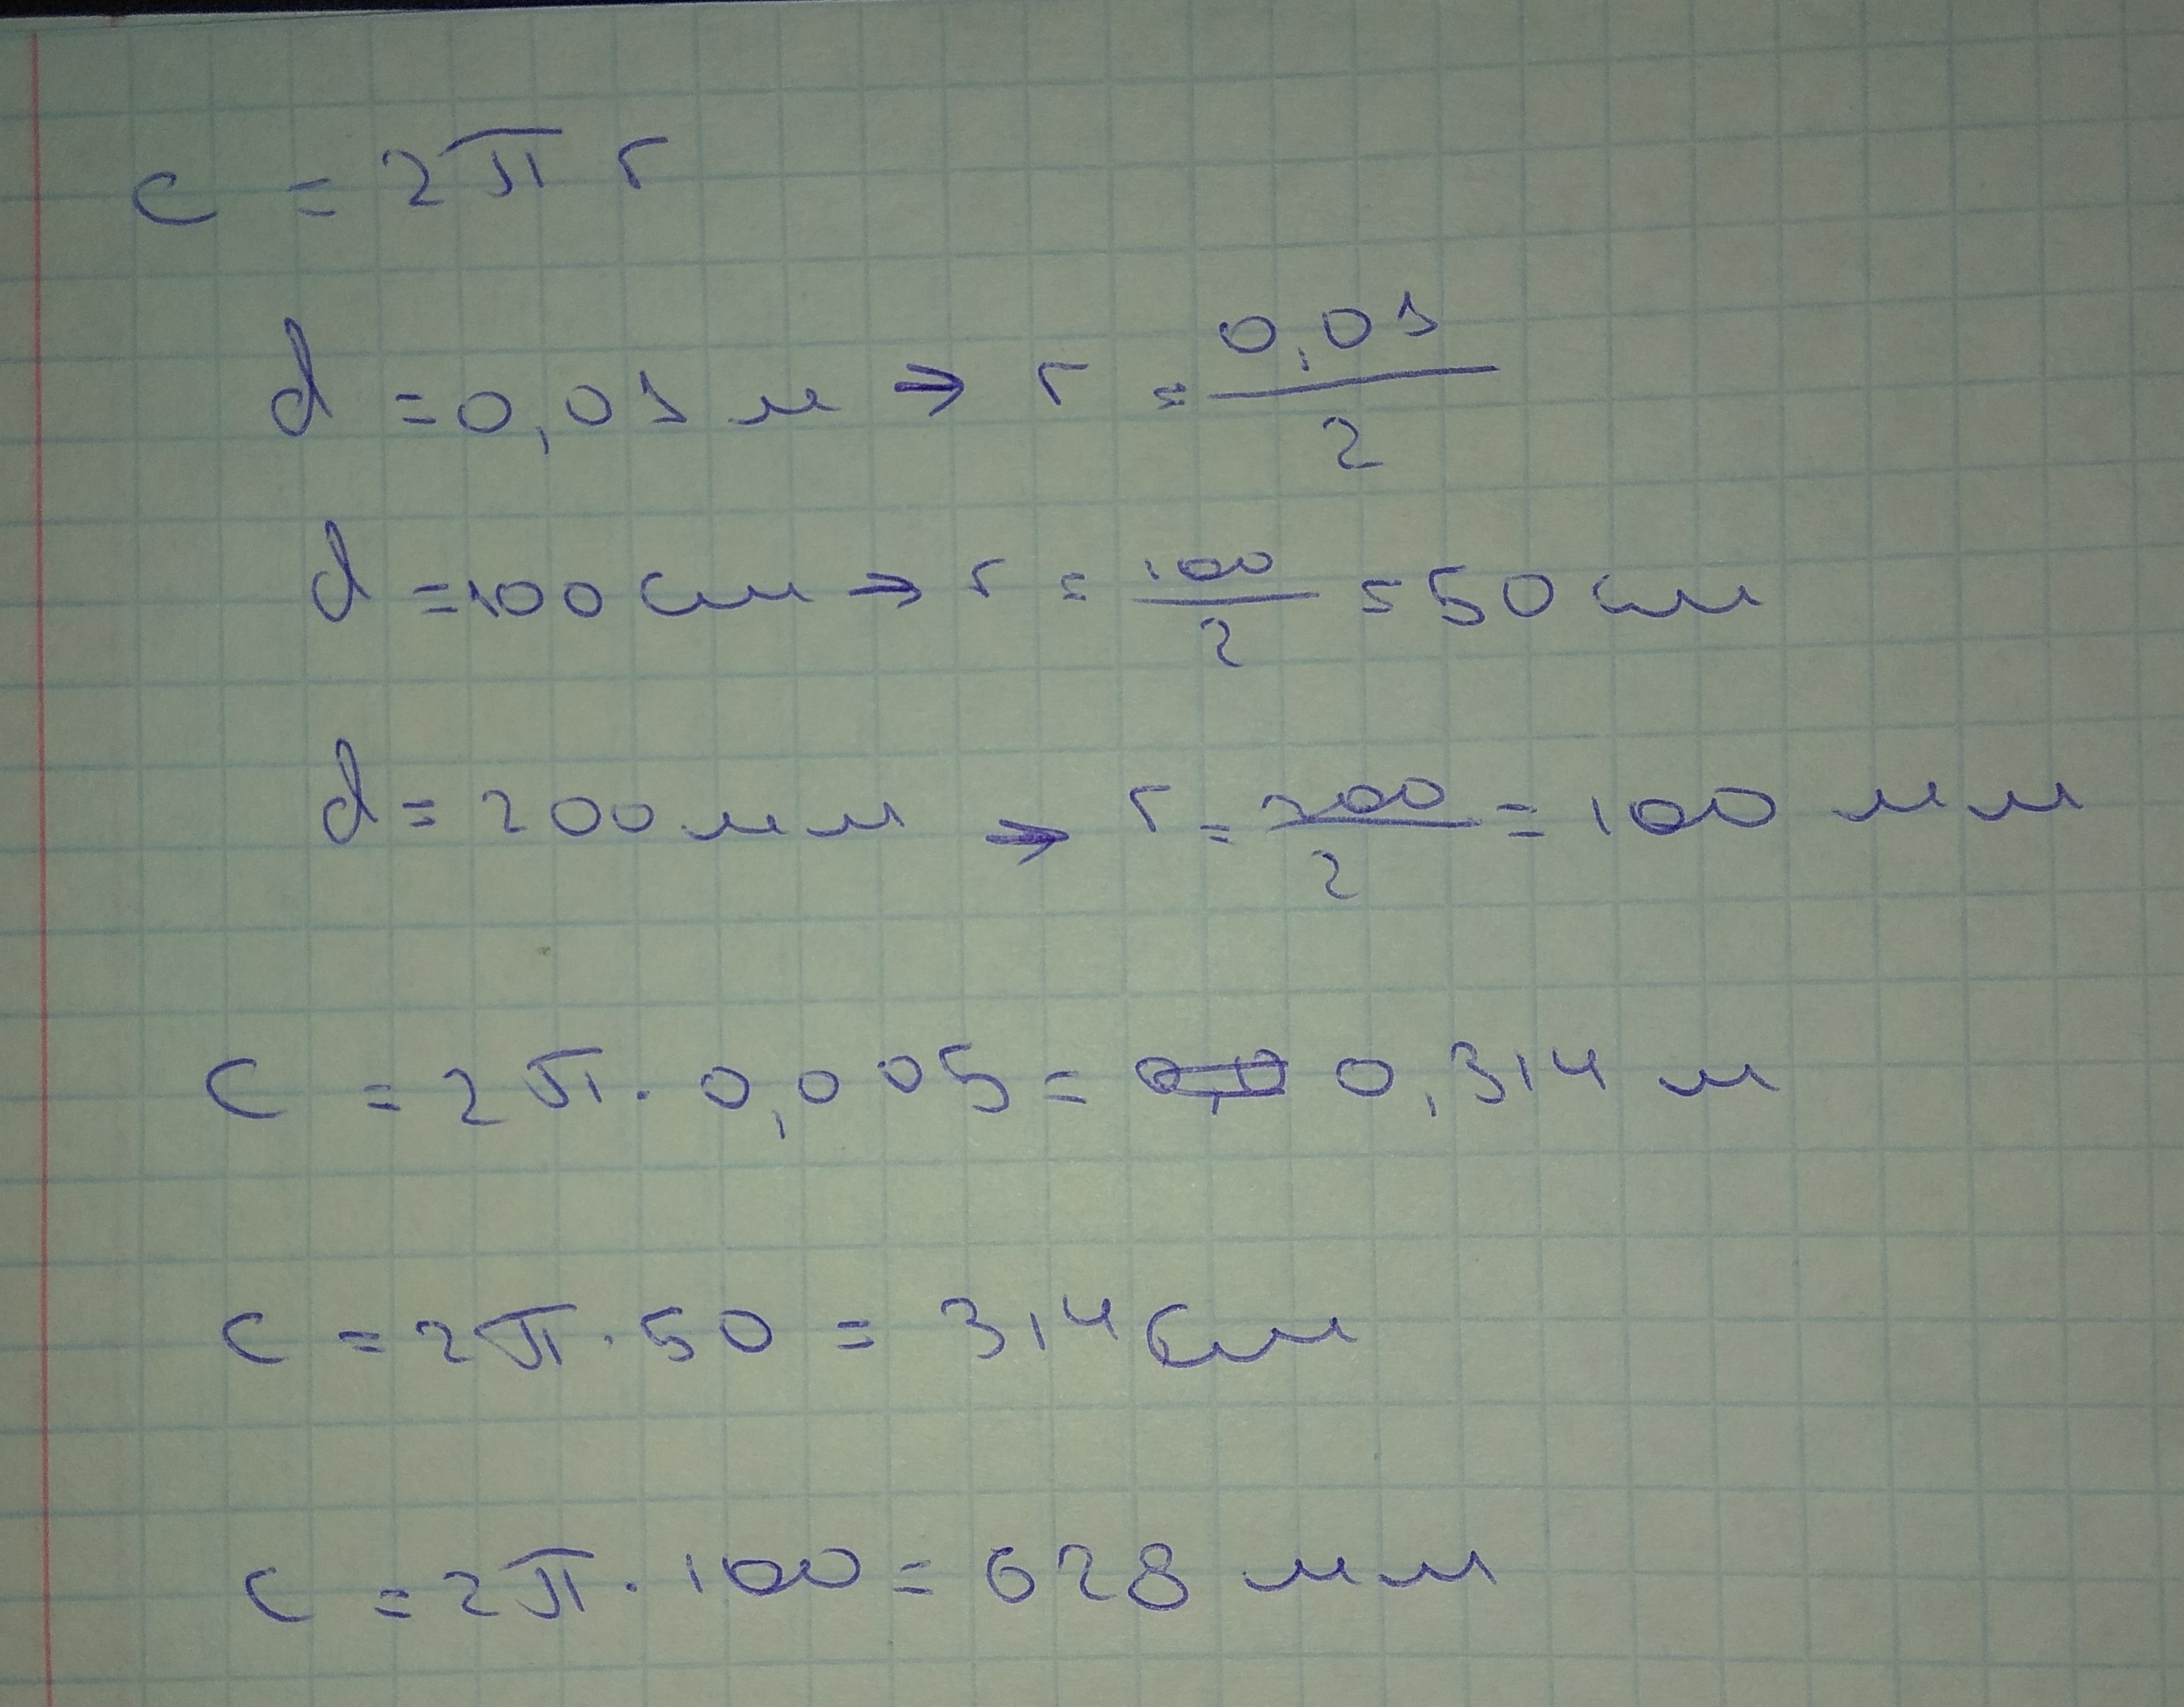 c = 2π r
d = 0,01 м → r = 0,01/2
d = 100 см → r = 100/2 = 50 см
d = 200 мм → r = 200/2 = 100 мм
c = 2π · 0,005 = 0,314 м
c = 2π · 50 = 314 см
c = 2π · 100 = 628 мм